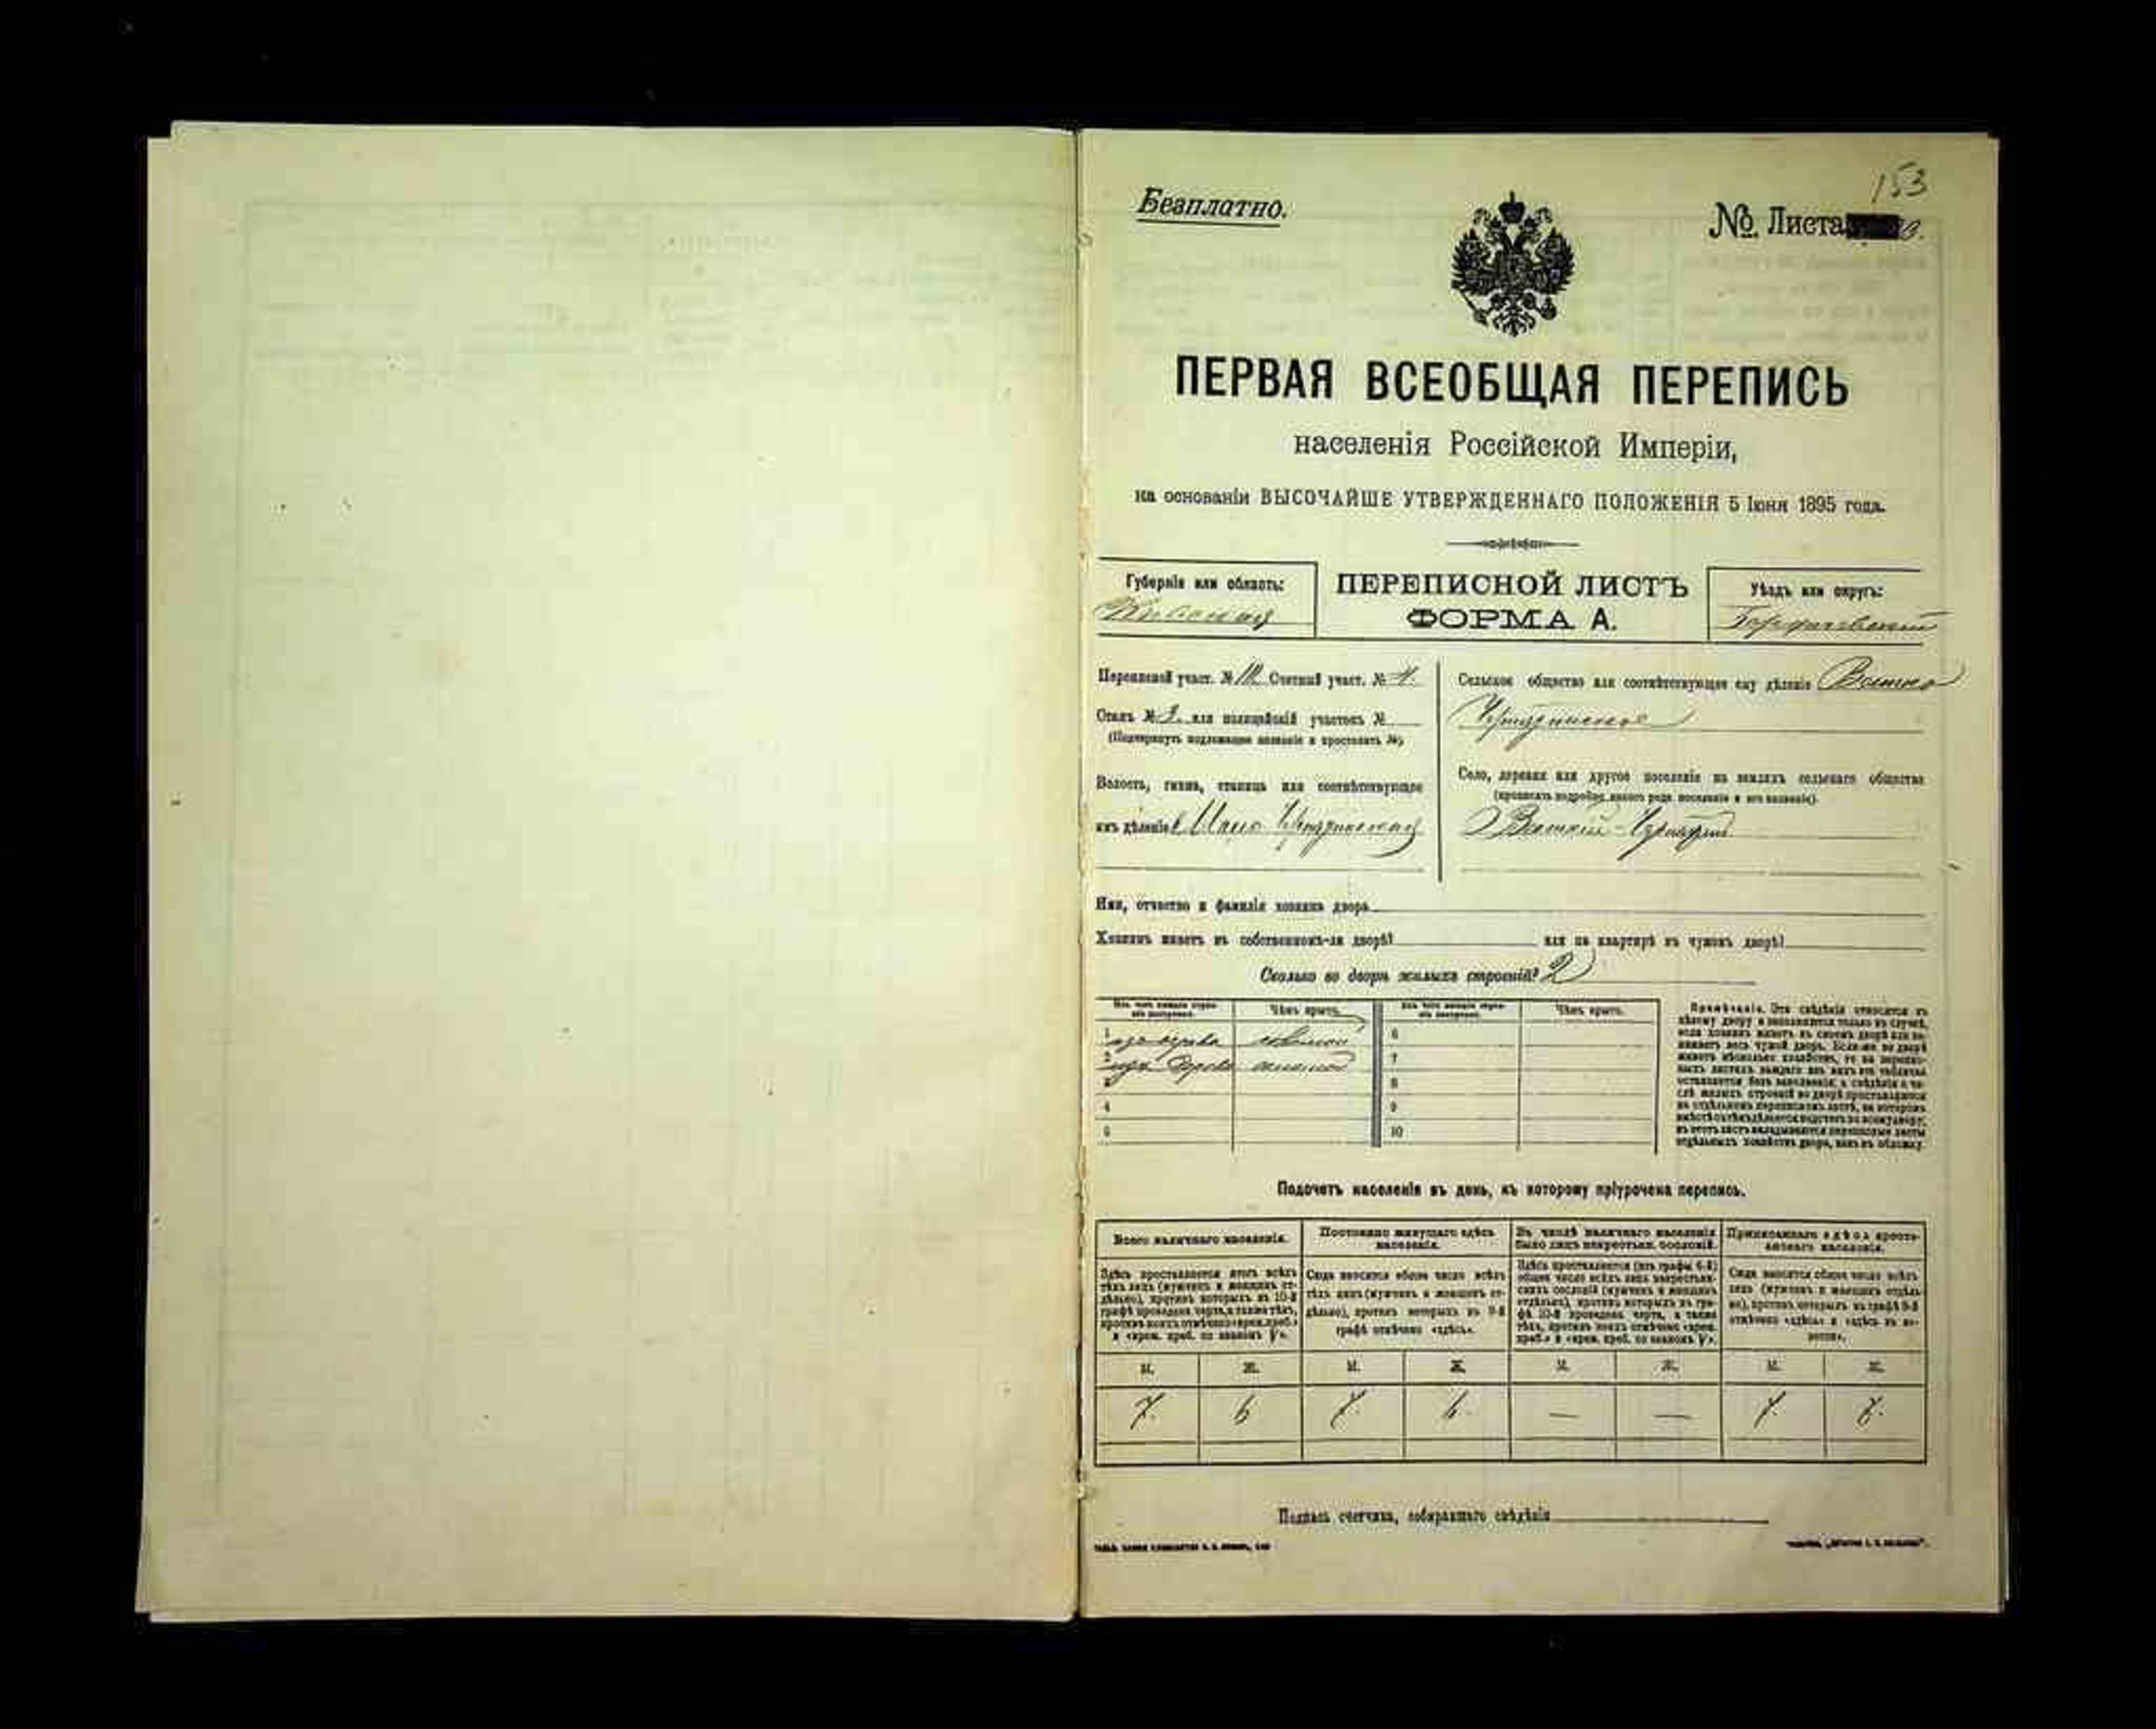 153
Безплатно.
№ Листа
ПЕРВАЯ ВСЕОБЩАЯ ПЕРЕПИСЬ
населенія Россійской Имперіи,
на основаніи ВЫСОЧАЙШЕ УТВЕРЖДЕННАГО ПОЛОЖЕНІЯ 5 Іюня 1895 года.
Губернія или область:
Кіевская
ПЕРЕПИСНОЙ ЛИСТЪ
ФОРМА А.
Уѣздъ или округъ:
Бердичевскій
Переписной участ. № Счетный участ. №
Станъ № или полицейскій участокъ №
(Подчеркнуть подлежащее названіе и проставить №)
Волость, гмина, станица или соотвѣтствующее
имъ дѣленіе
Сельское общество или соотвѣтствующее ему дѣленіе
Село, деревня или другое поселеніе на земляхъ сельскаго общества
(прописать подробно какого рода поселеніе и его названіе).
Имя, отчество и фамилія хозяина двора
Хозяинъ живетъ въ собственномъ-ли дворѣ? или на квартирѣ въ чужомъ дворѣ?
Сколько во дворѣ жилыхъ строеній? 2
Изъ чего жилыя строенія построены. Чѣмъ крыты. Изъ чего жилыя строенія построены. Чѣмъ крыты.
1 изъ дерева соломой 6
2 изъ дерева соломой 7
3 8
4 9
5 10
Примѣчаніе. Эти свѣдѣнія относятся къ
цѣлому двору и заполняются только въ случаѣ,
если хозяинъ живетъ въ своемъ дворѣ или занимаетъ весь чужой дворъ. Если-же во дворѣ
живетъ нѣсколько хозяйствъ, то на переписныхъ листахъ каждаго изъ нихъ эта табличка
оставляется безъ заполненія, а свѣдѣнія о числѣ жилыхъ строеній во дворѣ проставляются
на отдѣльномъ переписномъ листѣ, на которомъ
вмѣстѣ съ тѣмъ дѣлается подсчетъ по всему двору;
въ этотъ листъ вкладываются переписные листы
отдѣльныхъ хозяйствъ двора, какъ въ обложку.
Подсчетъ населенія въ день, къ которому пріурочена перепись.
Всего наличнаго населенія.
Постоянно живущаго здѣсь населенія.
Въ числѣ наличнаго населенія было лицъ некрестьян. сословій.
Приписаннаго здѣсь крестьянскаго населенія.
Здѣсь проставляется итогъ всѣхъ
тѣхъ лицъ (мужчинъ и женщинъ отдѣльно), противъ которыхъ въ 10-й
графѣ проведена черта, а также тѣхъ,
противъ коихъ отмѣчено «врем. преб.»
и «врем. преб. со знакомъ V».
Сюда вносится общее число всѣхъ
тѣхъ лицъ (мужчинъ и женщинъ отдѣльно), противъ которыхъ въ 9-й
графѣ отмѣчено «здѣсь».
Здѣсь проставляется (изъ графы 6-й)
общее число всѣхъ лицъ некрестьянскихъ сословій (мужчинъ и женщинъ
отдѣльно), противъ которыхъ въ графѣ 10-й проведена черта, а также
тѣхъ, противъ коихъ отмѣчено «врем.
преб.» и «врем. преб. со знакомъ V».
Сюда вносится общее число всѣхъ
лицъ (мужчинъ и женщинъ отдѣльно), противъ которыхъ въ графѣ 8-й
отмѣчено «здѣсь» и «здѣсь въ волости».
м. ж. м. ж. м. ж. м. ж.
7. 6 7. 6. — — 7. 7.
Подпись счетчика, собиравшаго свѣдѣнія